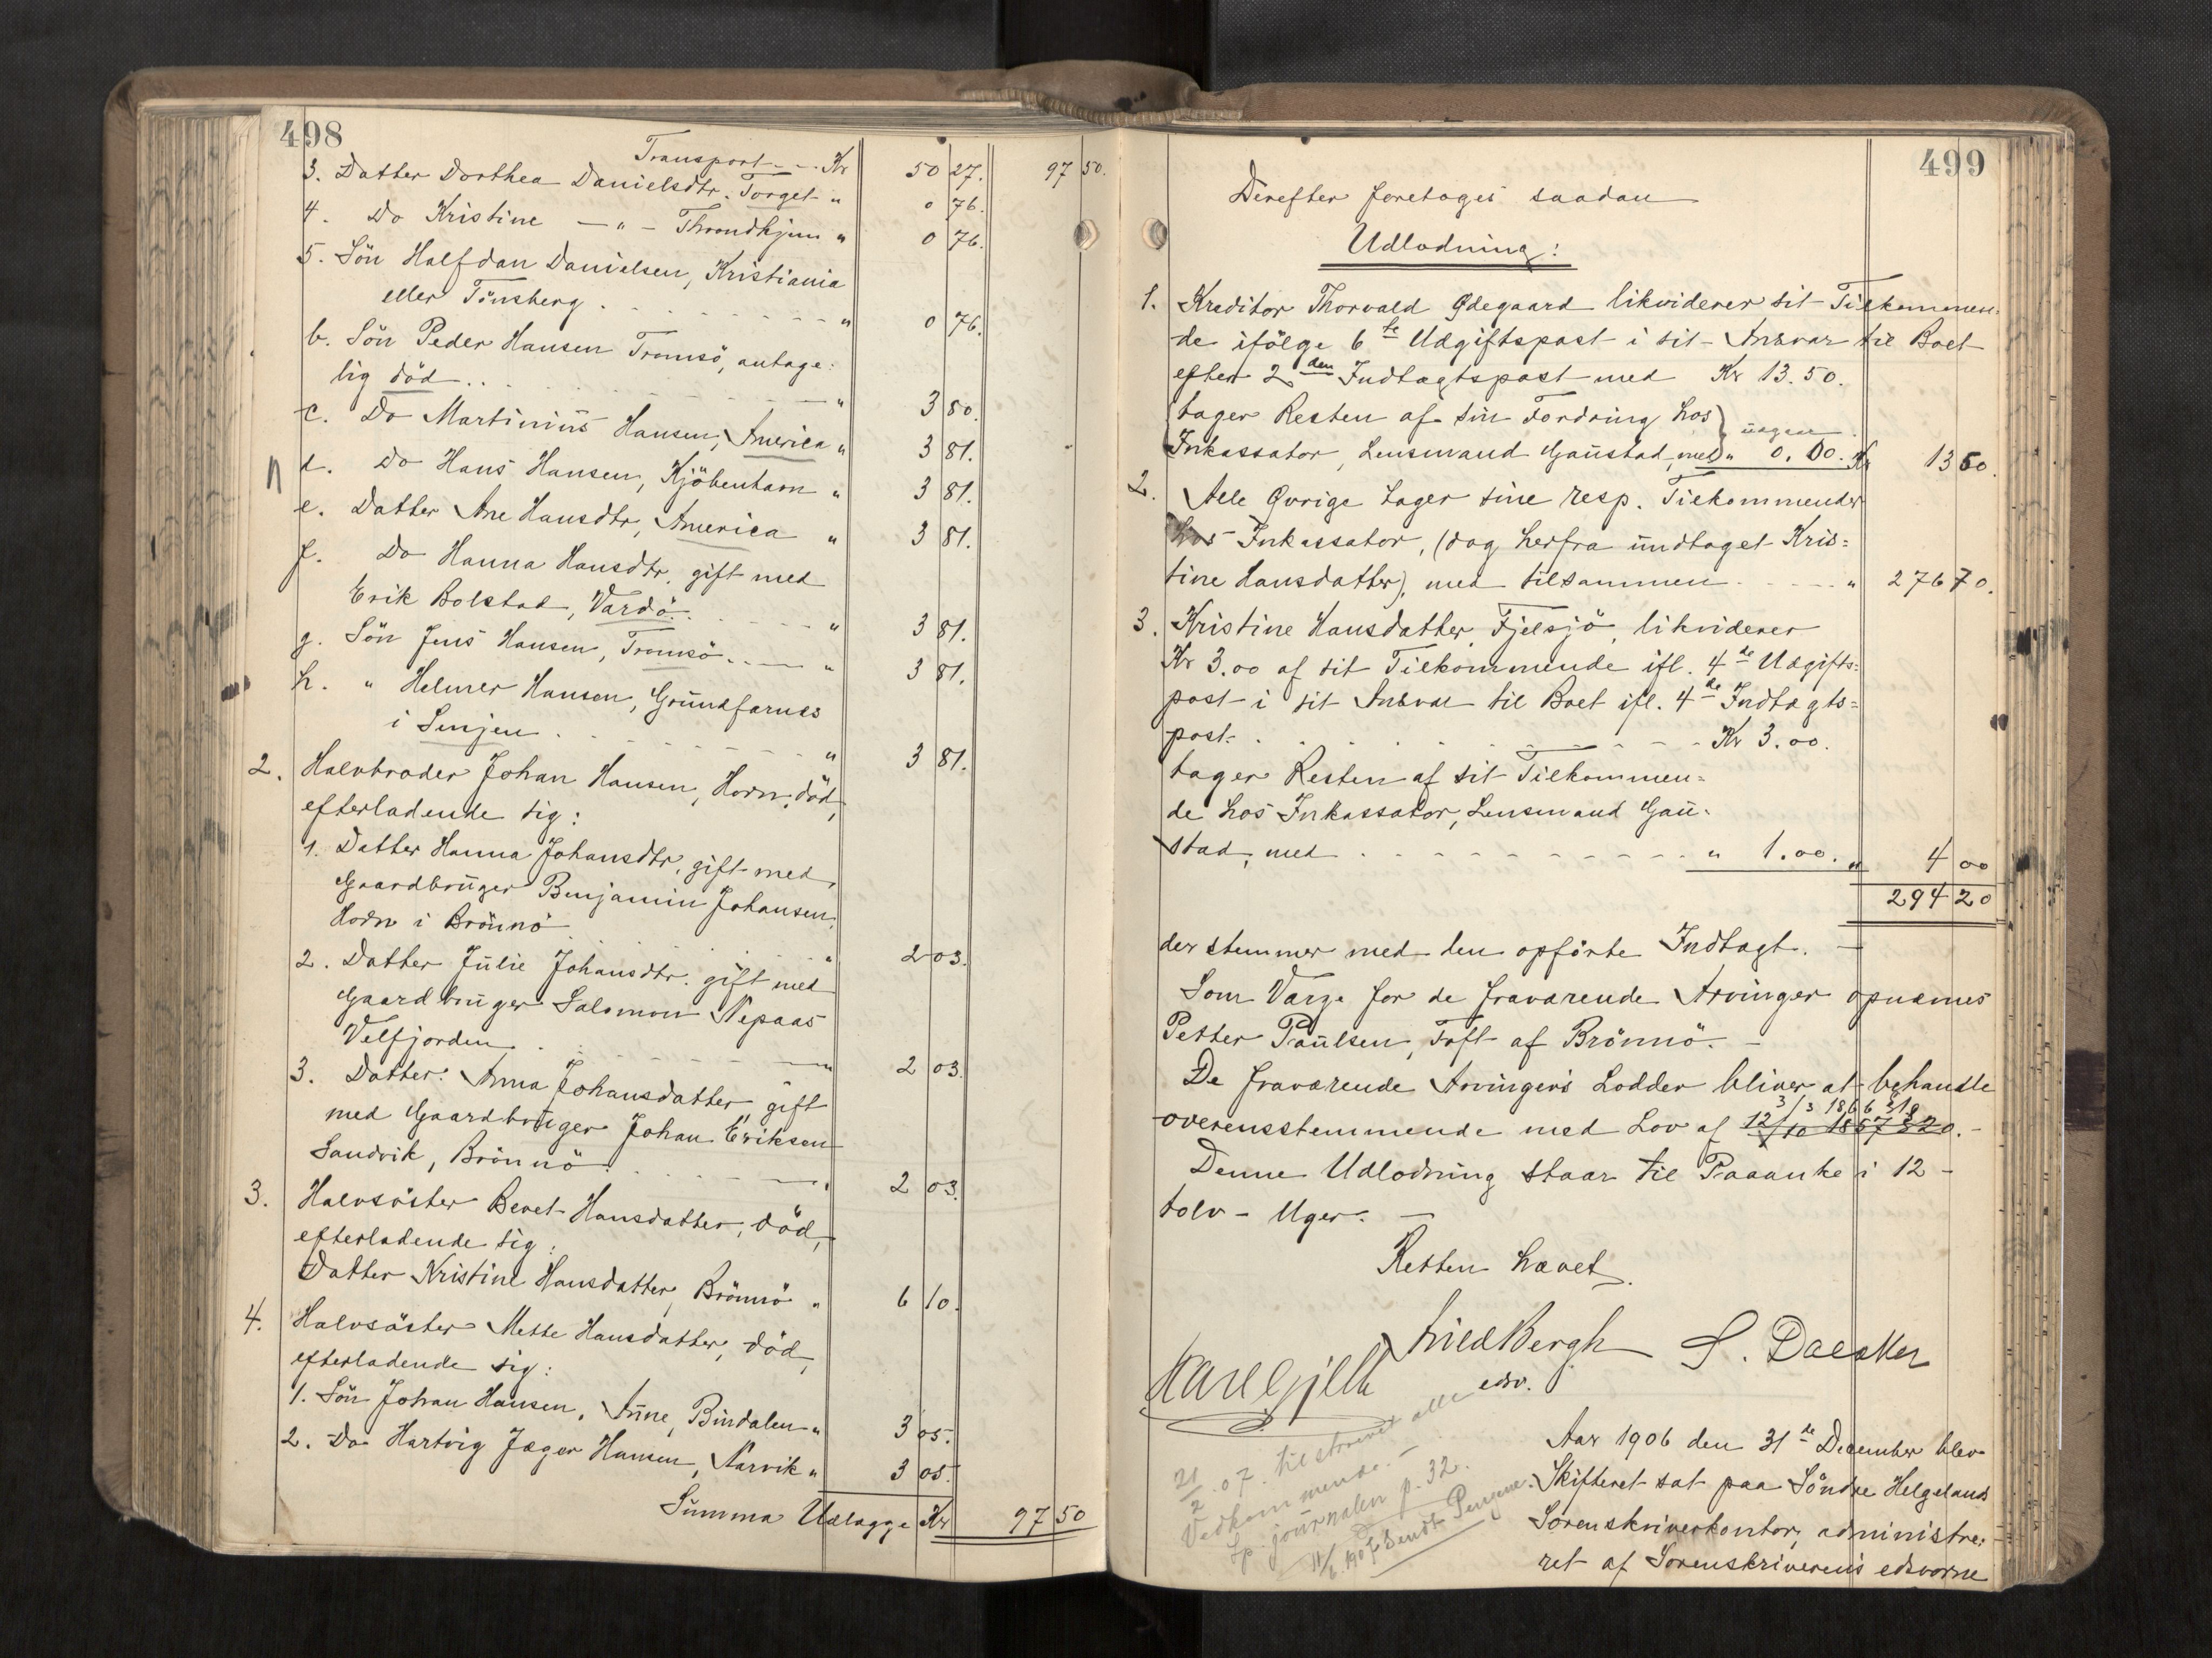 498
Transport - - - Kr 50 27. 97 50.
3. Datter Dorthea Danielsdtr. Torget " 0 76.
4. Do Kristine — " — Throndhjem " 0 76.
5. Sön Halfdan Danielsen, Kristiania
eller Tönsberg . . . . " 0 76.
b. Sön Peder Hansen Tromsö, antage:
lig död . . . . " 3 80.
c. Do Martinius Hansen, America " 3 81.
d. Do Hans Hansen, Kjöbenhavn " 3 81.
e. Datter Ane Hansdtr, America " 3 81.
f. Do Hanna Hansdtr, gift med
Erik Bolstad, Vardö . . . " 3 81.
g. Sön Jens Hansen, Tromsö . . . " 3 81.
h. " Helmer Hansen, Grundfarnes
i Senjen . . . . " 3 81.
2. Halvbroder Johan Hansen, Horn, död,
efterladende sig:
1. Datter Hanna Johansdtr. gift med
Gaardbruger Benjamin Johansen,
Horn i Brönnö . . . " 2 03.
2. Datter Julie Johansdtr. gift med
Gaardbruger Salomon Nepaas
Velfjorden . . . . " 2 03.
3. Datter: Anna Johansdatter, gift
med Gaardbruger Johan Eriksen
Sandvik, Brönnö . . . " 2 03.
3. Halvsöster Beret Hansdatter, död,
efterladende sig:
Datter Kristine Hansdatter, Brönnö " 6 10.
4. Halvsöster Mette Hansdatter, död,
efterladende sig:
1. Sön Johan Hansen, Aune, Bindalen " 3 05.
2. Do Hartvig Jæger Hansen, Narvik " 3 05.
Summa Udlægge Kr 97 50
499
Derefter foretoges saadan
Udlodning:
1. Kreditor Thorvald Ødegaard likviderer sit Tilkommen:
de ifölge 6te Udgiftspost i sit Ansvar til Boet
efter 2den Indtægtspost med Kr 13.50.
tager Resten af sin Fordring hos
Inkassator, Lensmand Gaustad, med " 0.00. Kr 13 50.
2. Alle Øvrige tager sine resp. Tilkommender
hos Inkassator, (dog herfra undtaget Kris=
tine Hansdatter), med tilsammen . . . " 276 70.
3. Kristine Hansdatter, Fjelsjö, likviderer
Kr 3.00 af sit Tilkommende ifl. 4de Udgifts=
post i sit Ansvar til Boet ifl. 4de Indtægts=
post . . . . Kr 3.00.
tager Resten af sit Tilkommen=
de hos Inkassator, Lensmand Gau=
stad, med . . . . " 1.00. " 4 00
294 20
der stemmer med den opförte Indtægt. —
Som Værge for de fraværende Arvinger opnævnes
Petter Paulsen, Toft af Brönnö. —
De fraværende Arvingers Lodder bliver at behandle
3/3 1866 318
overensstemmende med Lov af 12/10 1857 320. —
Denne Udlodning staar til Paaanke i 12 -
tolv - Uger. —
Retten hævet.
Karl Gjelli AriedBergh S. Daecker
edsv.
21/2.07. tilskrevet alle
Vedkommende. —
Sp. journalen p. 32.
11/6 1907 sendt Pengene.
Aar 1906 den 31te December blev
Skifteret sat paa Söndre Helgelands
Sorenskriverkontor, administre:
ret af Sorenskriverens edsvorne